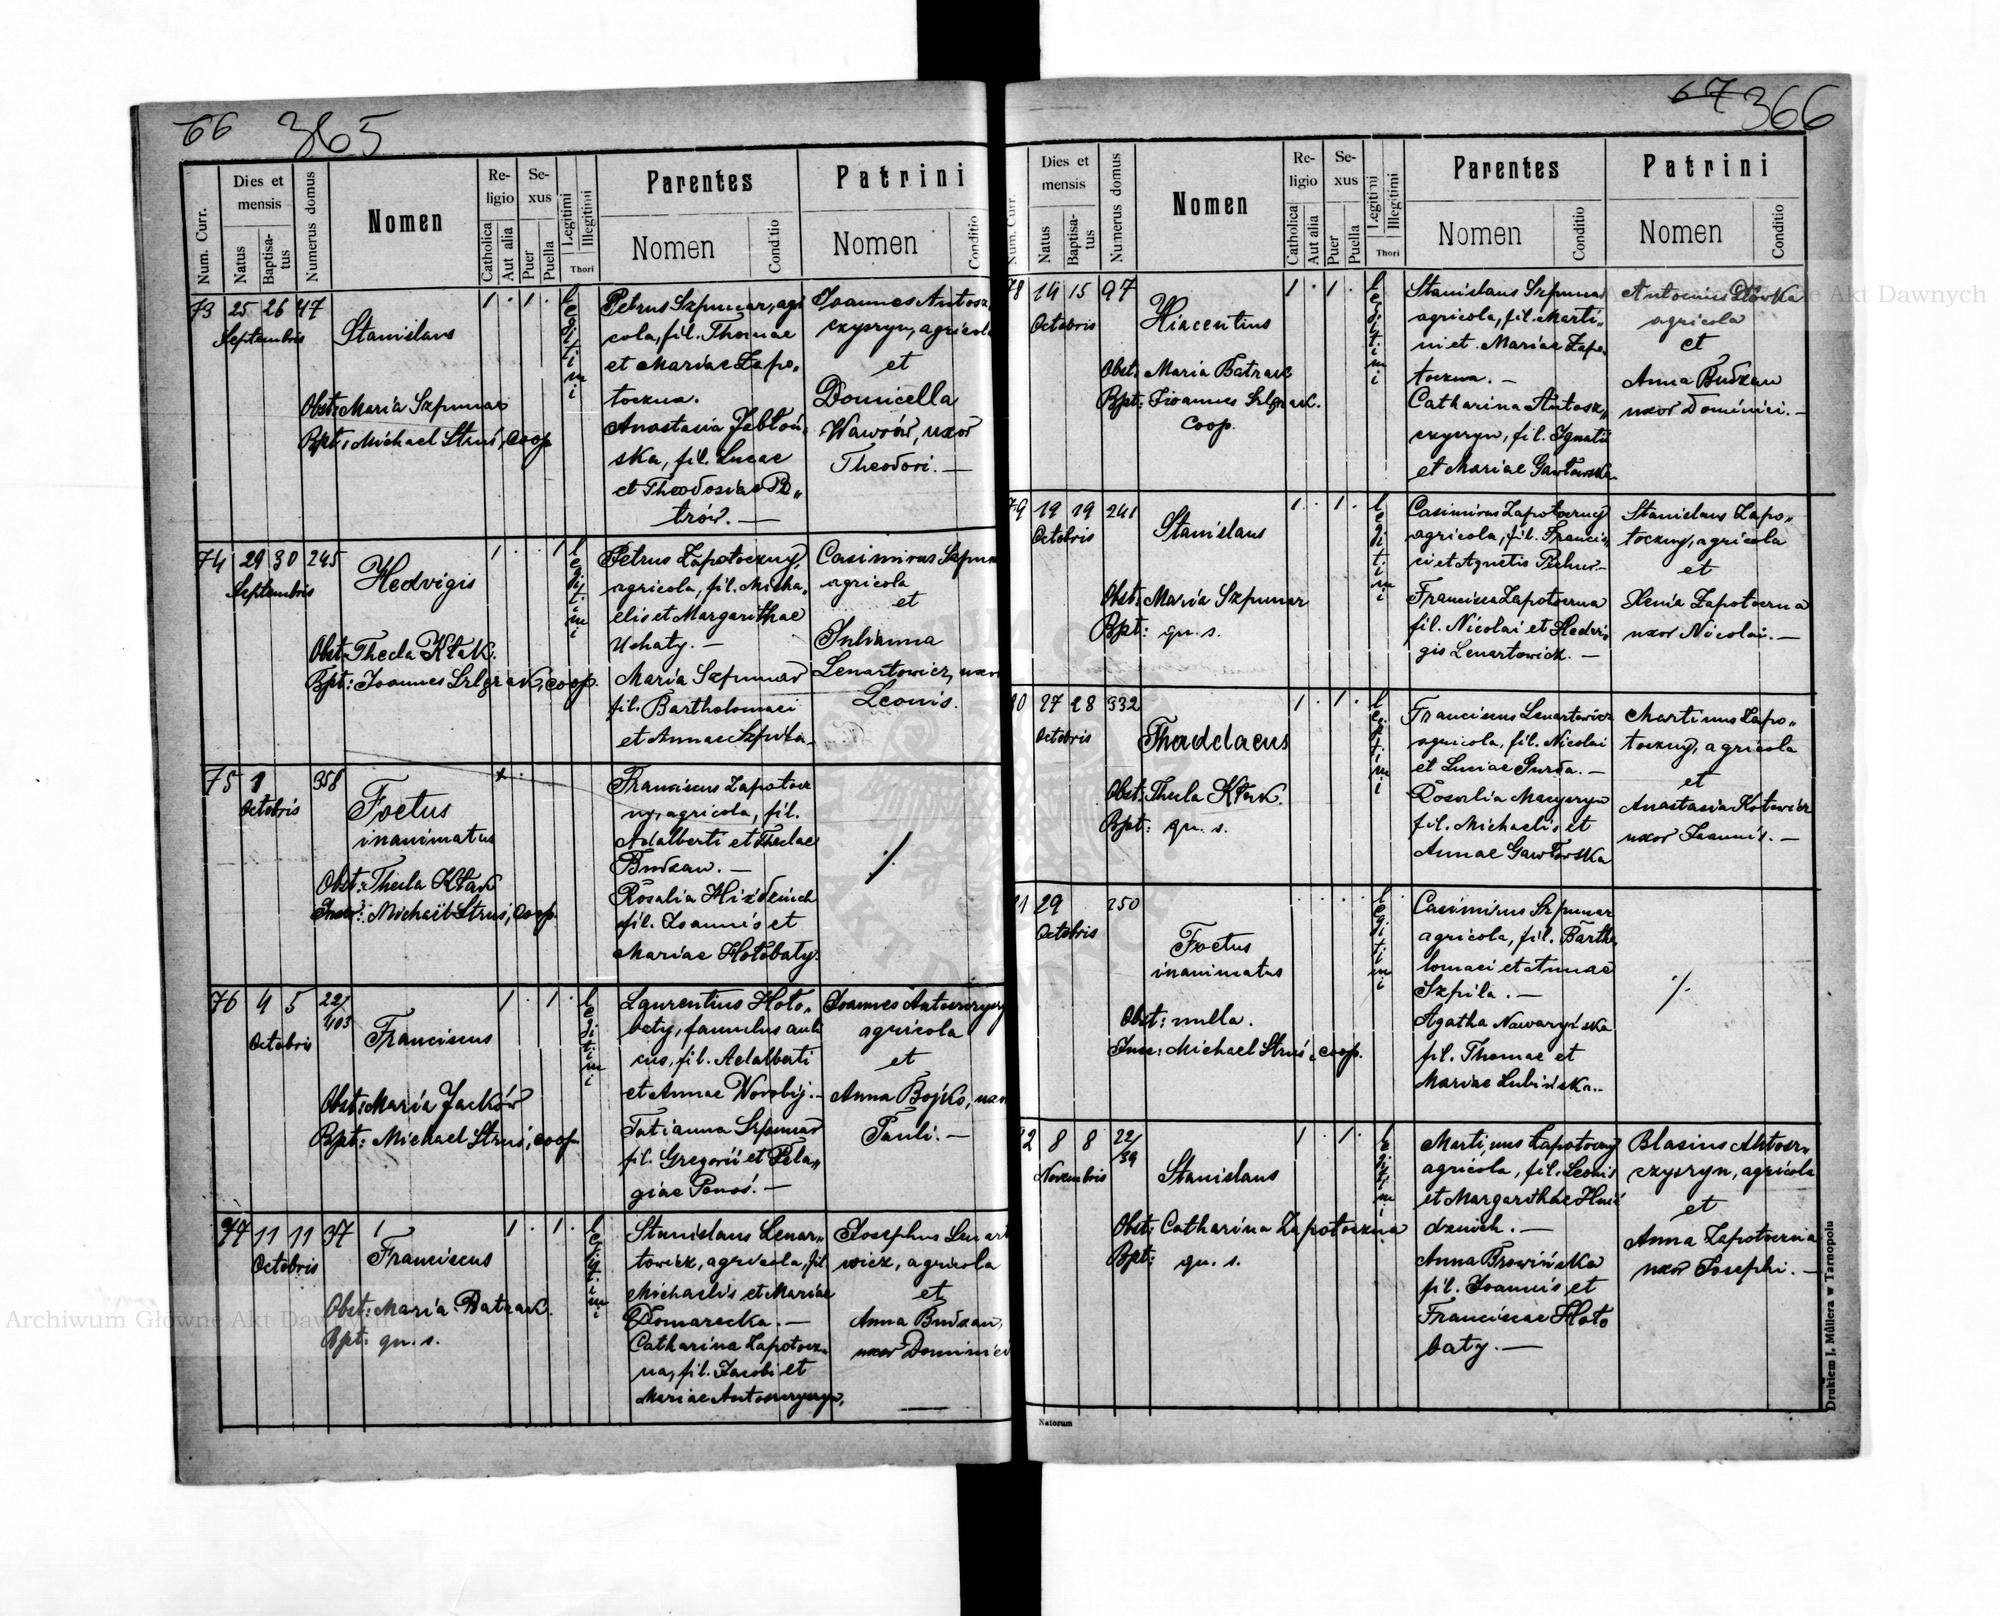 66 365
Num. Curr.
Dies et mensis
Natus
Baptisa-tus
Numerus domus
Nomen
Re-ligio
Catholica
Aut alia
Se-xus
Puer
Puella
Legitimi
Illegitimi
Thori
Parentes
Nomen
Conditio
Patrini
Nomen
Conditio
73 25 26 47
Septembris
Stanislaus
Obst: Maria Szpunar
Bpt: Michael Struś, coop
1 . 1 .
legitimi
Petrus Szpunar, agri
cola, fil. Thomae
et Mariae Zapo„
toczna.
Anastasia Jabłoń„
ska, fil. Lucae
et Theodosiae
trów. —
Joannes Antosz
czyszyn, agricola
et
Domicella
Wawrów, uxor
Theodori. —
74 29 30 245
Septembris
Hedvigis
Obst: Thecla Kłak.
Bpt: Joannes Szlgrak, coop.
1 . . 1
legitimi
Petrus Zapotoczny,
agricola, fil. Micha„
elis et Margarithae
Uchaty. —
Maria Szpunar
fil. Bartholomaei
et Annae Szpiła.
Casimirus Szpun
agricola
et
Julianna
Lenartowicz, uxor
Leonis.
75 1 358
Octobris
Foetus
inanimatus
Obst: Thecla Kłak
Michaël Struś, coop.
Franciscus Zapotocz
ny, agricola, fil.
Adalberti et Theclae
Budzan. —
Rosalia
fil. Joannis et
Mariae Hołobaty.
·/.
76 4 5 22/403
Octobris
Franciscus
Obst: Maria Jacków
Bpt: Michael Struś, coop
1 . 1 .
legitimi
Laurentius Hoło„
baty, famulus auli
cus, fil. Adalberti
et Annae Worobij. —
Tatianna Szpunar
fil. Gregorii et Pela„
giae Panoś. —
Joannes Antoszczyszyn
agricola
et
Anna Bojko, uxor
Pauli. —
77 11 11 37
Octobris
Franciscus
Obst: Maria Batrak.
Bpt: qu. s.
1 . 1 .
legitimi
Stanislaus Lenar„
towicz, agricola, fil.
Michaelis et Mariae
Domarecka. —
Catharina Zapotocz„
na, fil. Jacobi et
Mariae Antoszczyszyn.
Josephus Lenart
wicz, agricola
et
Anna Budzan,
uxor Dominici
67 366
Num. Curr.
Dies et mensis
Natus
Baptisa-tus
Numerus domus
Nomen
Re-ligio
Catholica
Aut alia
Se-xus
Puer
Puella
Legitimi
Illegitimi
Thori
Parentes
Nomen
Conditio
Patrini
Nomen
Conditio
78 14 15 97
Octobris
Hiacentius
Obst: Maria Batrak
Bpt: Joannes Szlgrak.
coop.
1 . 1 .
legitimi
Stanislaus Szpunar
agricola, fil. Marti„
ni et Mariae Zapo„
toczna. —
Catharina Antosz„
czyszyn, fil. Ignatii
et Mariae Gawłowska.
Antonius Słowka
agricola
et
Anna Budzan
uxor Dominici. —
79 19 19 241
Octobris
Stanislaus
Obst: Maria Szpunar
Bpt: qu. s.
1 . 1 .
legitimi
Casimirus Zapotoczny
agricola, fil. Francis„
ci et Agnetis
Francisca Zapotoczna
fil. Nicolai et Hedvi„
gis Lenartowicz. —
Stanislaus Zapo„
toczny, agricola
et
Xenia Zapotoczna
uxor Nicolai. —
80 27 28 332
Octobris
Thaddaeus
Obst: Thecla Kłak.
Bpt: qu. s.
1 . 1 .
legitimi
Franciscus Lenartowicz
agricola, fil. Nicolai
et Luciae Gurda. —
Rosalia
fil. Michaelis et
Annae Gawłowska
Martinus Zapo„
toczny, agricola
et
Anastasia Kotowicz
uxor Joannis. —
81 29 250
Octobris
Foetus
inanimatus
Obst: nulla.
Michael Struś, coop.
legitimi
Casimirus Szpunar
agricola, fil. Bartho
lomaei et Annae
Szpiła. —
Agatha Nawaryńska
fil. Thomae et
Mariae Lubińska. —
·/.
82 8 8 22/39
Novembris
Stanislaus
Obst: Catharina Zapotoczna
Bpt: qu. s.
1 . 1 .
legitimi
Martinus Zapotoczny
agricola, fil. Leonis
et Margarithae
Anna Browińska
fil. Joannis et
Franciscae Hoło
baty. —
Blasius Antosz„
czyszyn, agricola
et
Anna Zapotoczna
uxor Josephi. —
Natorum
Drukiem J. Müllera w Tarnopolu
Archiwum Główne Akt Dawnych
Archiwum Główne Akt Dawnych